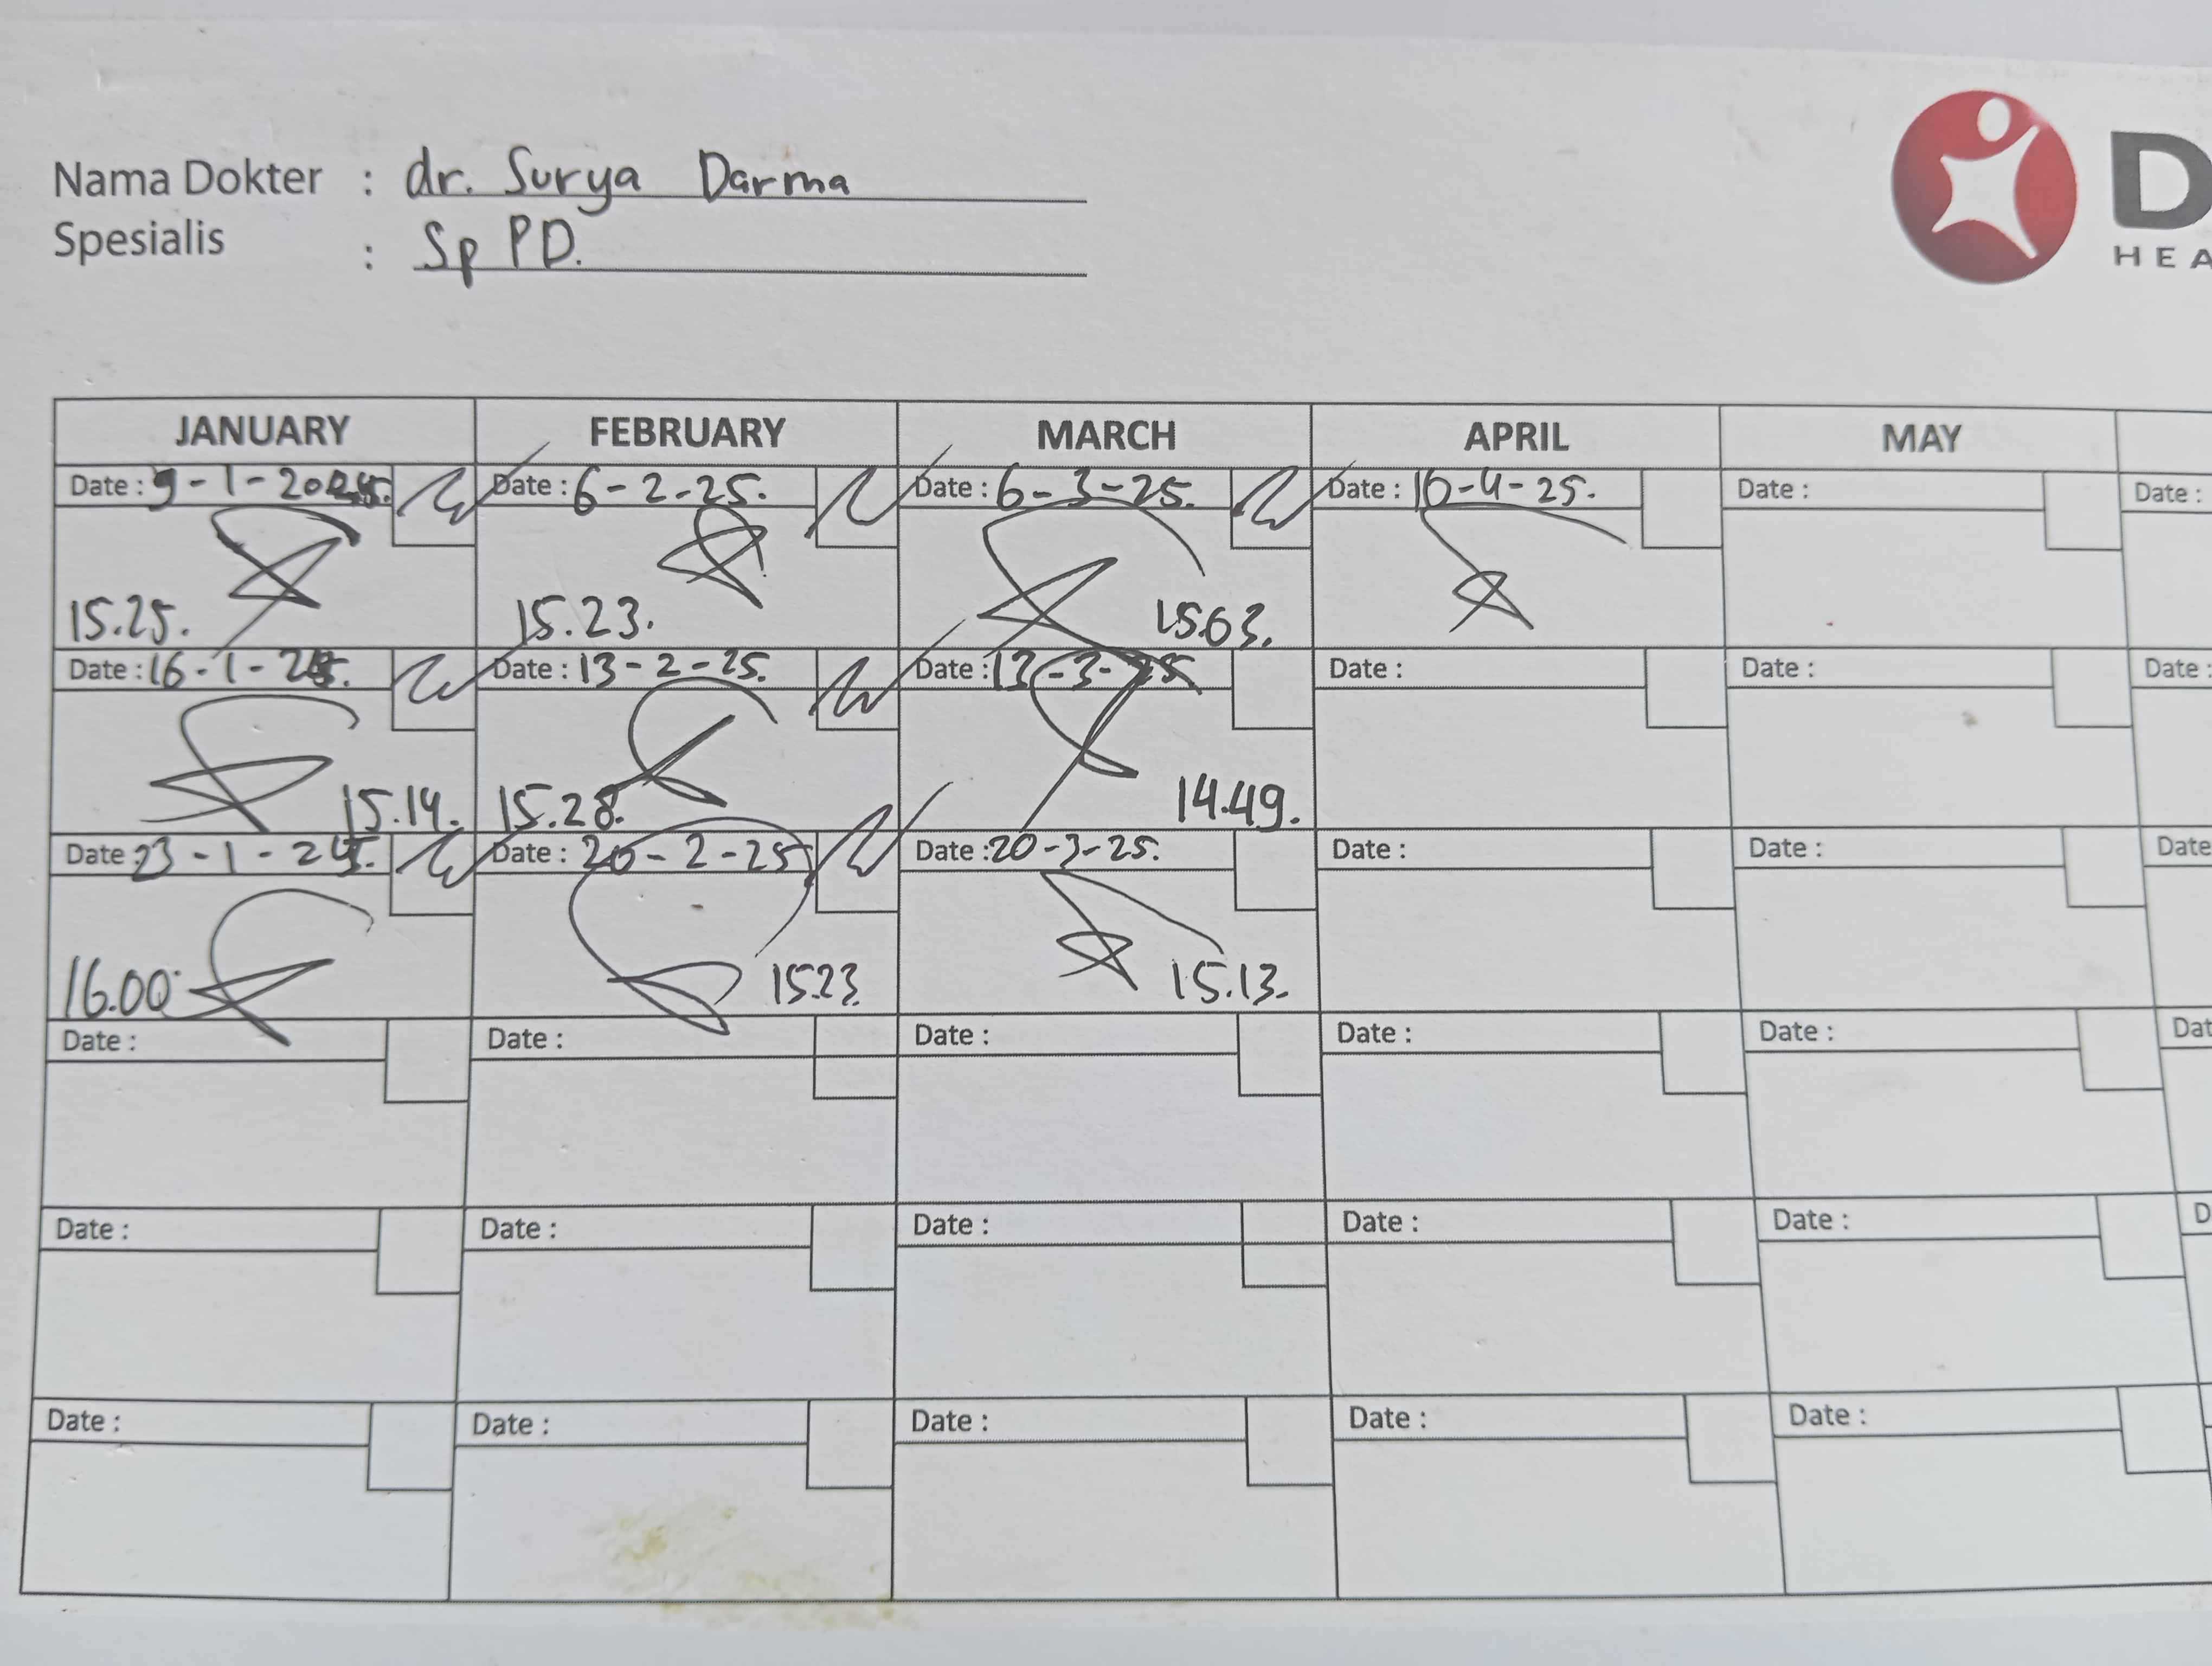 Nama Dokter : dr. Surya Darma
Spesialis : Sp PD.
D
HEA
JANUARY FEBRUARY MARCH APRIL MAY
Date : 9-1-2025. Date : 6-2-25. Date : 6-3-25. Date : 10-4-25. Date : Date :
15.25. 15.23. 15.03.
Date : 16-1-25. Date : 13-2-25. Date : 13-3-25 Date : Date : Date :
15.14. 15.28. 14.49.
Date : 23-1-25. Date : 20-2-25 Date : 20-3-25. Date : Date : Date
16.00 15.23. 15.13.
Date : Date : Date : Date : Date : Dat
Date : Date : Date : Date : Date : D
Date : Date : Date : Date : Date :